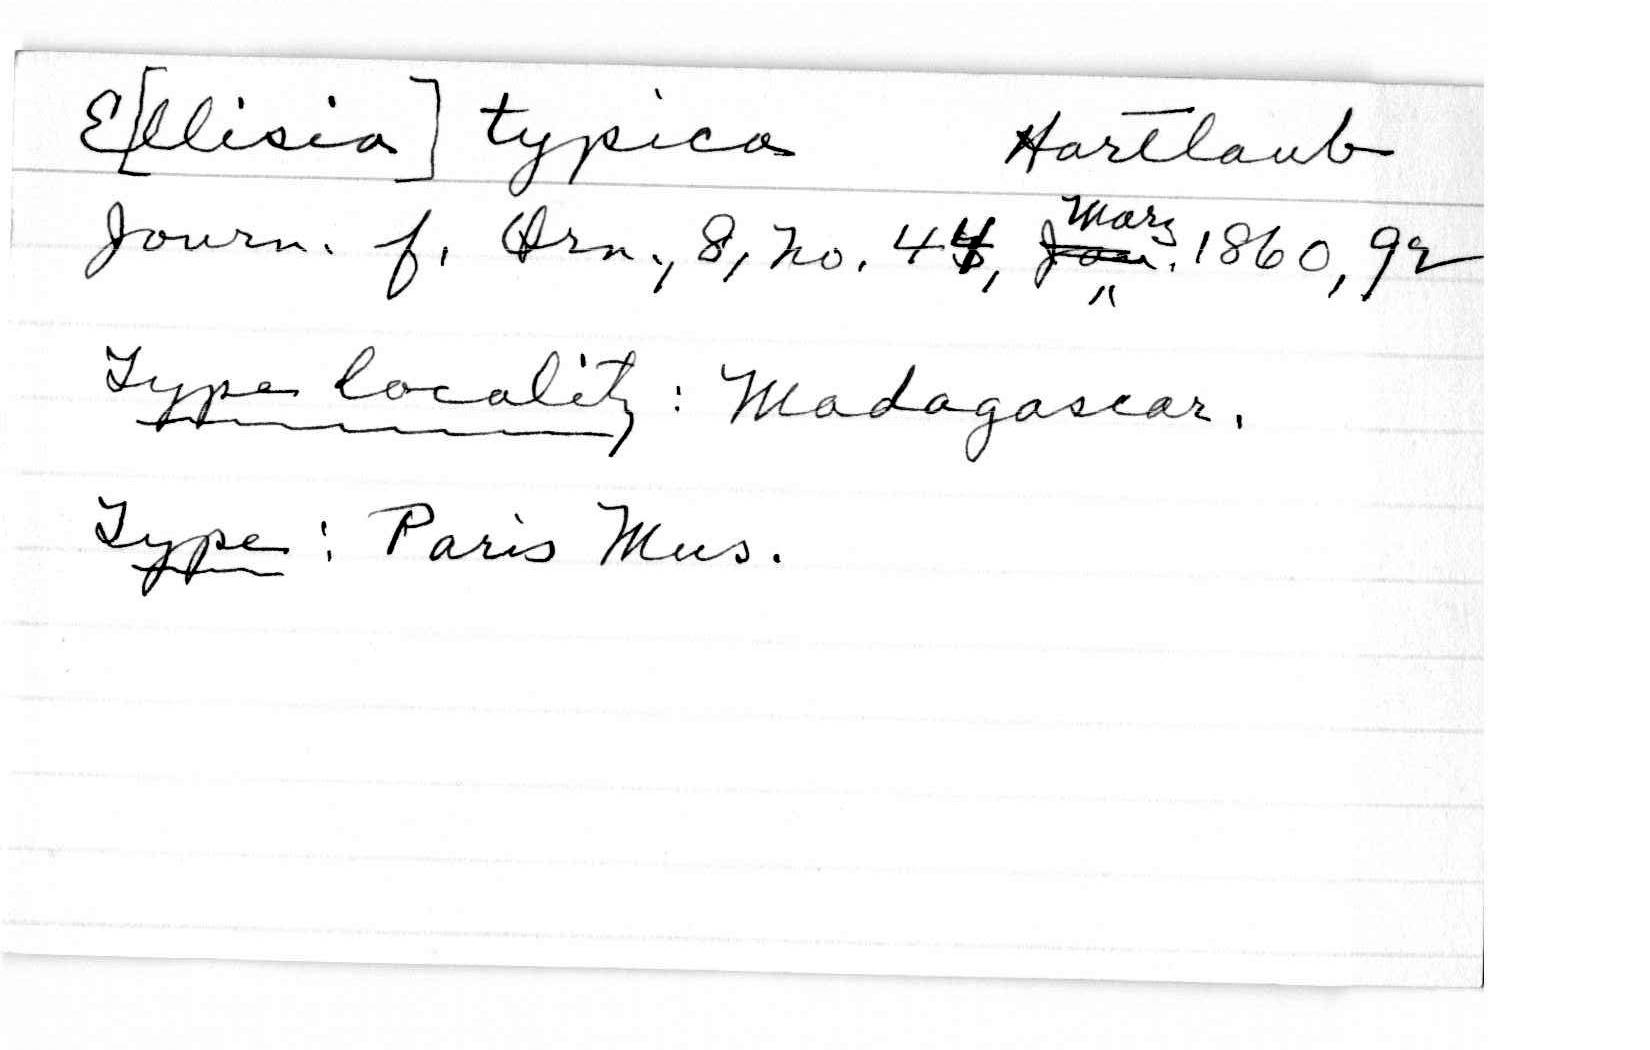 E[llisia] typica Hartlaub
Journ. f. Orn., 8, no. 44, März 1860, 92
Type locality: Madagascar.
Type: Paris Mus.